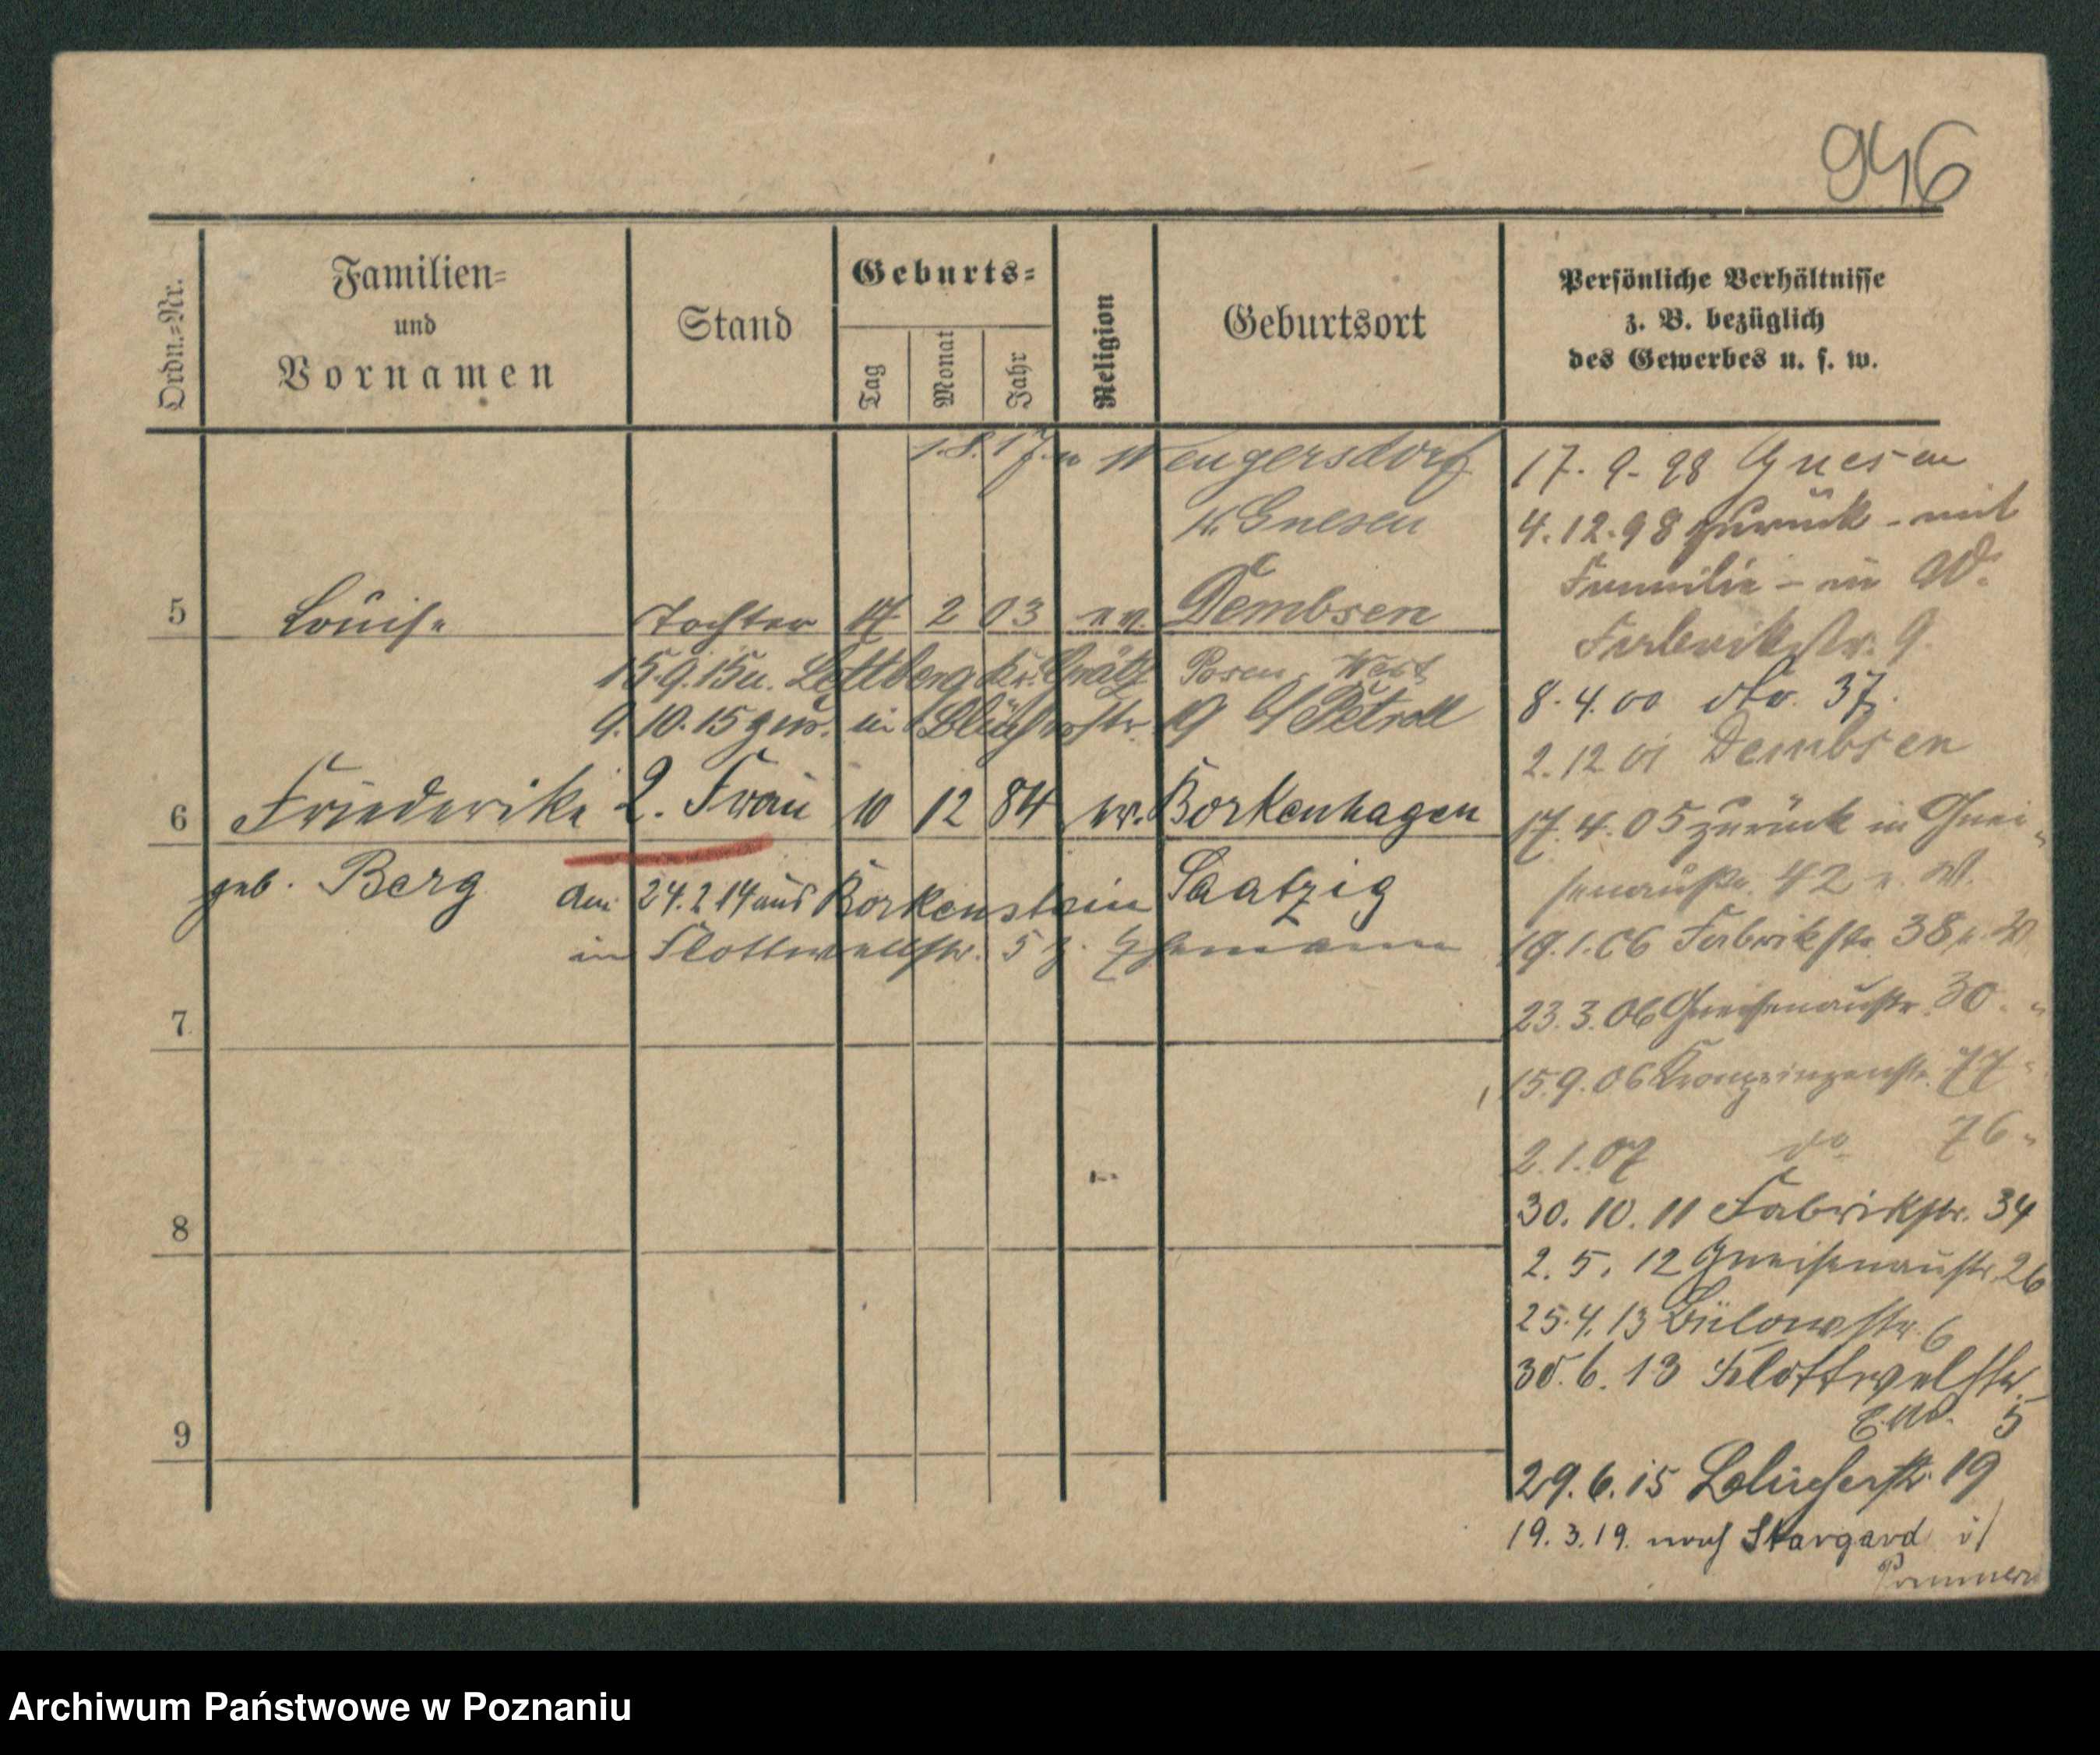 946
Ordn.-Nr.
Familien-
und
Vornamen
Stand
Geburts-
Tag
Monat
Jahr
Religion
Geburtsort
Persönliche Verhältnisse
z. B. bezüglich
des Gewerbes u. s. w.
1.8.17 n Wengersdorf
Kr. Gnesen
5 Louise Tochter 17 2 03 ev. Dembsen
15.9.15 u. Lettberg Kr. Grätz Posen West
9.10.15 zur. in Blücherstr. 19 b/ Petroll
6 Friederike 2. Frau 10 12 84 ev. Borkenhagen
geb. Berg Saatzig
den 24.2.14 aus Borkenstein
in Flottwellstr. 5 z. Ehemann
7
8
9
17.9.98 Gnesen
4.12.98 zurück - mit
Familie - in W.
Fabrikstr. 9.
8.4.00 do. 37.
2.12 01 Dembsen
17.4.05 zurück in Gnei-
senaustr. 42 n. W.
19.1.06 Fabrikstr. 38 n. W
23.3.06 Gneisenaustr. 30 "
15.9.06 Kronprinzenstr. 77 "
2.1.07 do 76 "
30.10.11 Fabrikstr. 34
2.5.12 Gneisenaustr. 26
25.4.13 Bülowstr. 6
30.6.13 Flottwelstr.
5
29.6.15 Blücherstr. 19
19.3.19. nach Stargard i/
Pommern
Archiwum Państwowe w Poznaniu